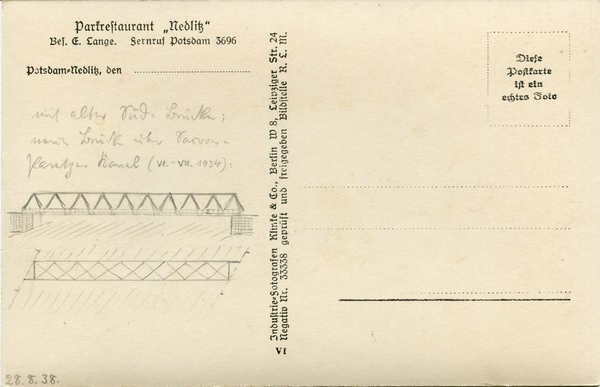 Parkrestaurant „Nedlitz“
Bes. E. Lange. Fernruf Potsdam 3696
Potsdam-Nedlitz, den
mit alter Süd-Brücke;
neue Brücke über Sacrow-
Paretzer Kanal (VI.-VII. 1934):
28.8.38.
Industrie-Fotografen Klinke & Co., Berlin W 8, Leipziger Str. 24
Negativ Nr. 33338 geprüft und freigegeben Bildstelle R. L. M.
VI
Diese
Postkarte
ist ein
echtes Foto